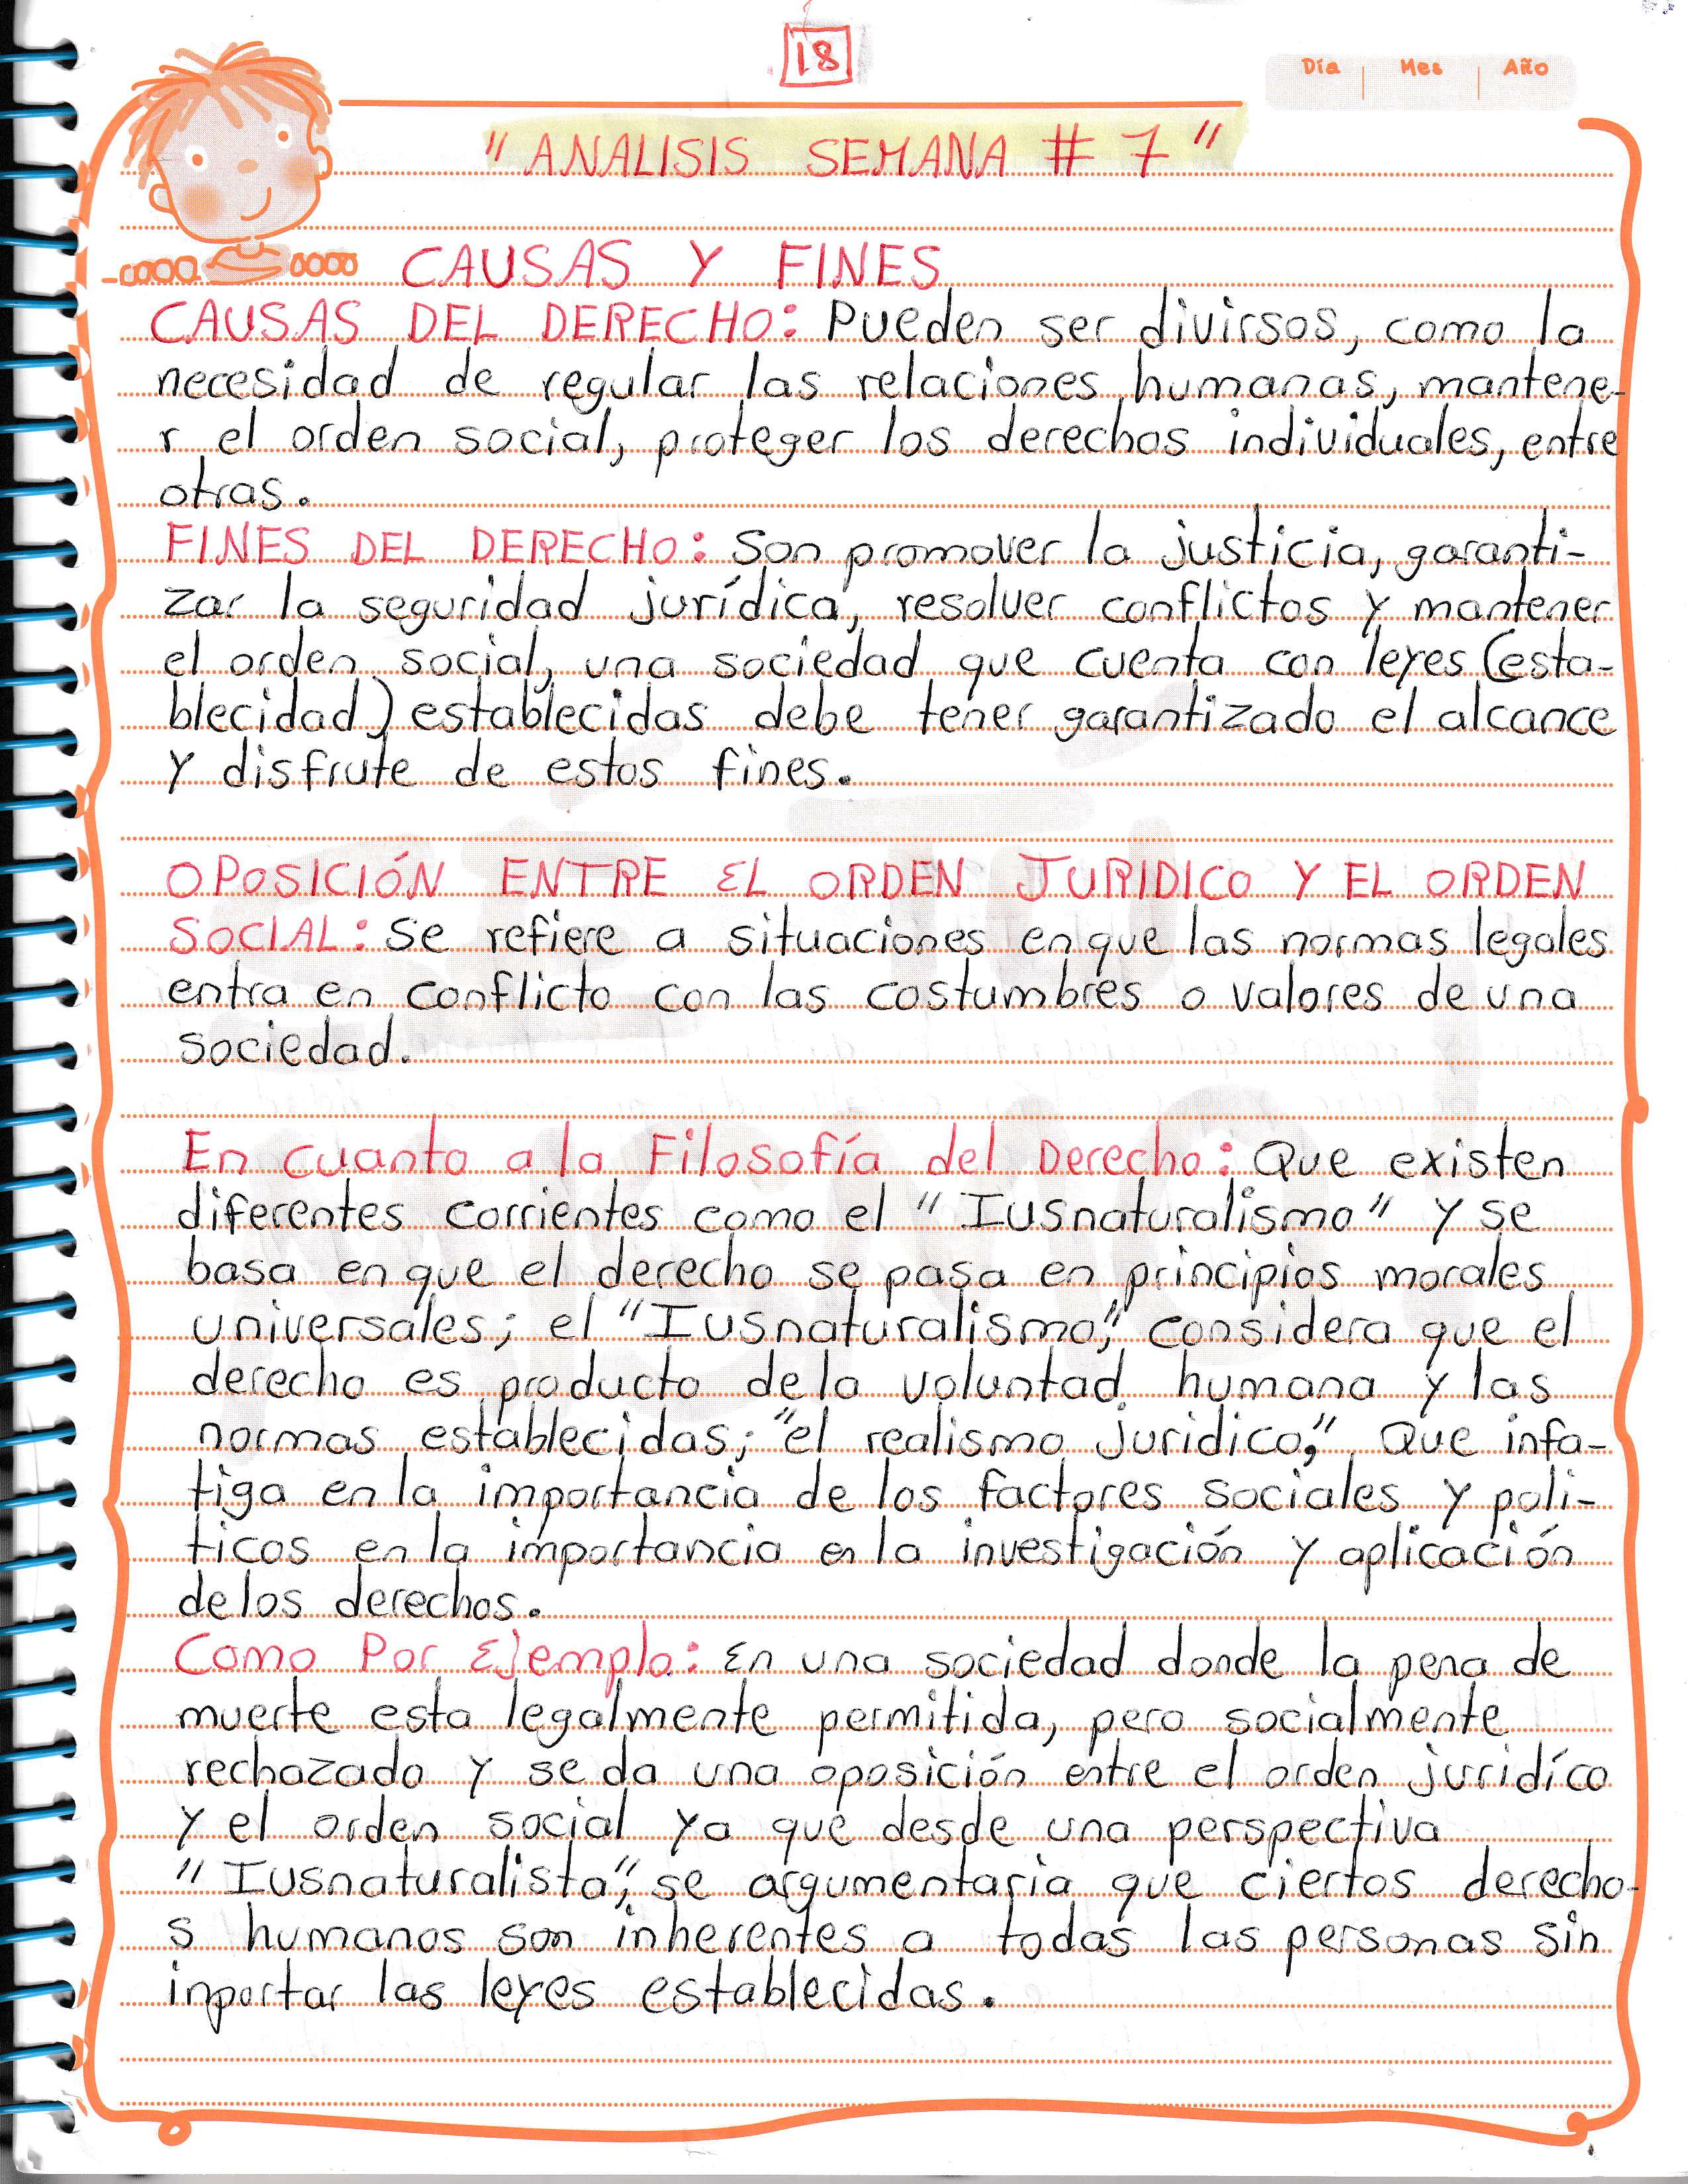 18
Día Mes Año
"ANALISIS SEMANA # 7"
CAUSAS Y FINES
CAUSAS DEL DERECHO: Pueden ser divirsos, como la
necesidad de regular las relaciones humanas, mantene-
r el orden social, proteger los derechos individuales, entre
otras.
FINES DEL DERECHO: Son promover la justicia, garanti-
zar la seguridad jurídica, resolver conflictos y mantener
el orden social, una sociedad que cuenta con leyes (esta-
blecidad) establecidas debe tener garantizado el alcance
y disfrute de estos fines.
OPOSICIÓN ENTRE EL ORDEN JURIDICO Y EL ORDEN
SOCIAL: Se refiere a situaciones en que las normas legales
entra en conflicto con las costumbres o valores de una
sociedad.
En cuanto a la Filosofía del Derecho: Que existen
diferentes corrientes como el "Iusnaturalismo" y se
basa en que el derecho se pasa en principios morales
universales; el "Iusnaturalismo," considera que el
derecho es producto de la voluntad humana y las
normas establecidas; "el realismo juridico," Que infa-
tiga en la importancia de los factores sociales y poli-
ticos en la importancia en la investigación y aplicación
de los derechos.
Como Por Ejemplo: En una sociedad donde la pena de
muerte esta legalmente permitida, pero socialmente
rechazado y se da una oposición entre el orden juridíco
y el orden social ya que desde una perspectiva
"Iusnaturalista", se argumentaria que ciertos derecho-
s humanos son inherentes a todas las personas sin
inportar las leyes establecidas.